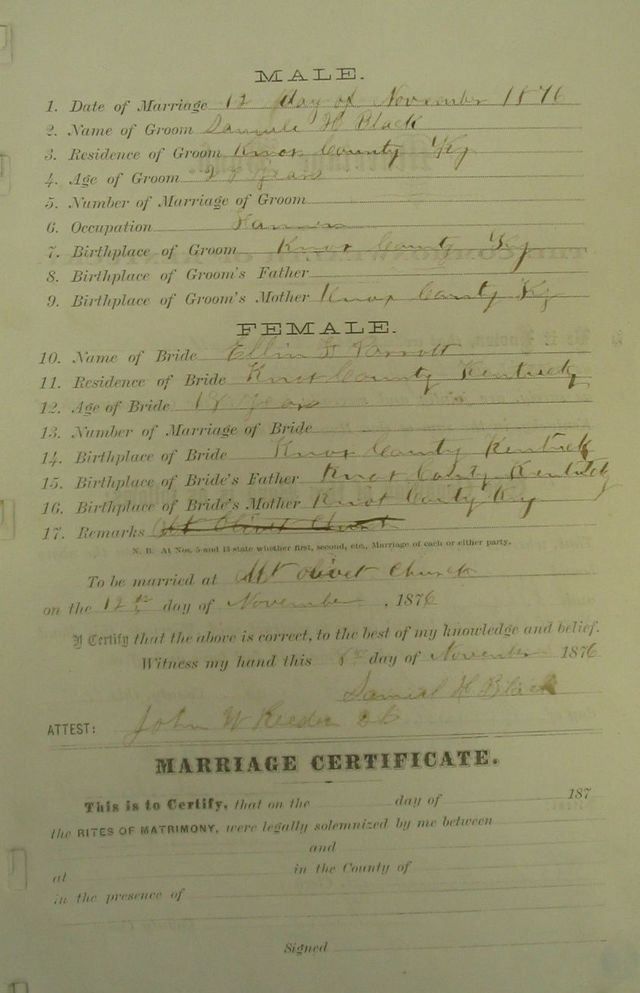 MALE.
1. Date of Marriage 12 day of November 1876
2. Name of Groom Samuel H Black
3. Residence of Groom Knox County Ky
4. Age of Groom years
5. Number of Marriage of Groom
6. Occupation Farmer
7. Birthplace of Groom Knox County Ky
8. Birthplace of Groom's Father
9. Birthplace of Groom's Mother Knox County Ky
FEMALE.
10. Name of Bride Ellin F Parrott
11. Residence of Bride Knox County Kentucky
12. Age of Bride 18 years
13. Number of Marriage of Bride
14. Birthplace of Bride Knox County Kentucky
15. Birthplace of Bride's Father Knox County Kentucky
16. Birthplace of Bride's Mother Knox County Ky
17. Remarks Mt Olivet Church
N. B. At Nos. 5 and 13 state whether first, second, etc., Marriage of each or either party.
To be married at Mt Olivet Church
on the 12th day of November, 1876
I Certify that the above is correct, to the best of my knowledge and belief.
Witness my hand this day of November 1876
Samuel H Black
ATTEST: John W
MARRIAGE CERTIFICATE.
This is to Certify, that on the day of 187
the RITES OF MATRIMONY, were legally solemnized by me between
and
at in the County of
in the presence of
Signed